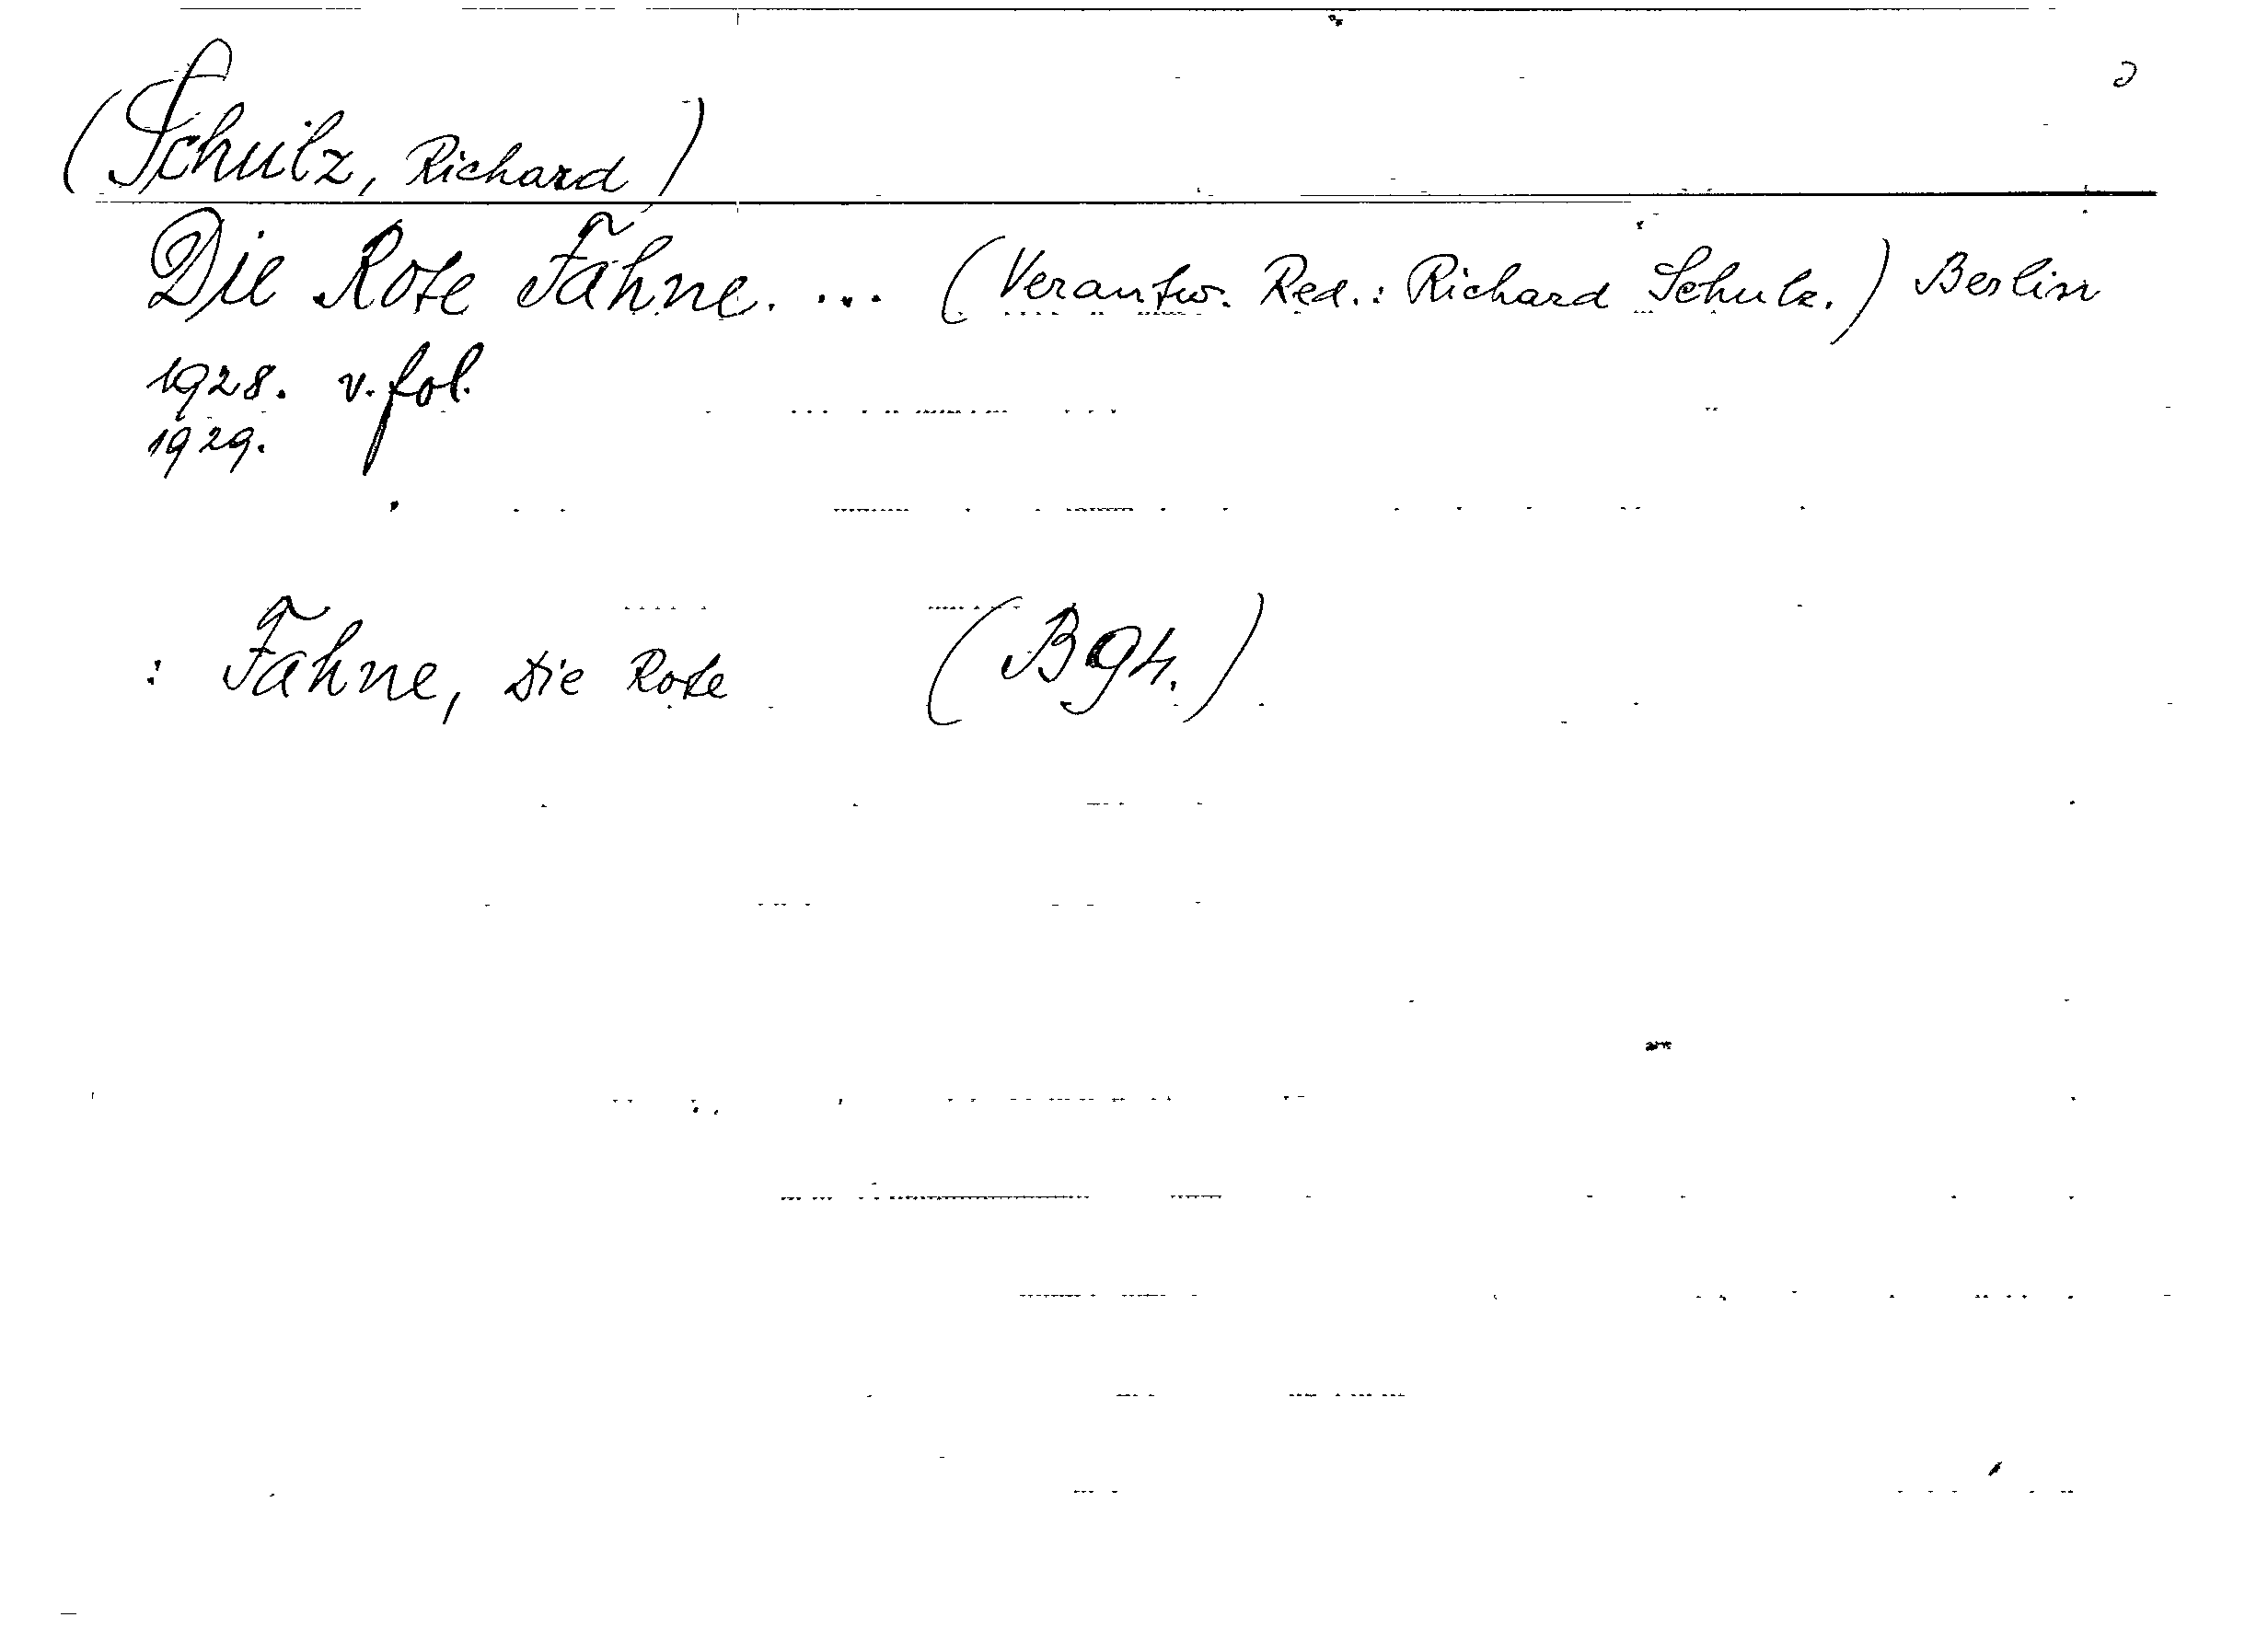 (Schulz, Richard)
Die Rote Fahne. ... (Verantw. Red.: Richard Schulz.) Berlin
1928. v. fol.
1929.
: Fahne, Die Rote (Bgh.)